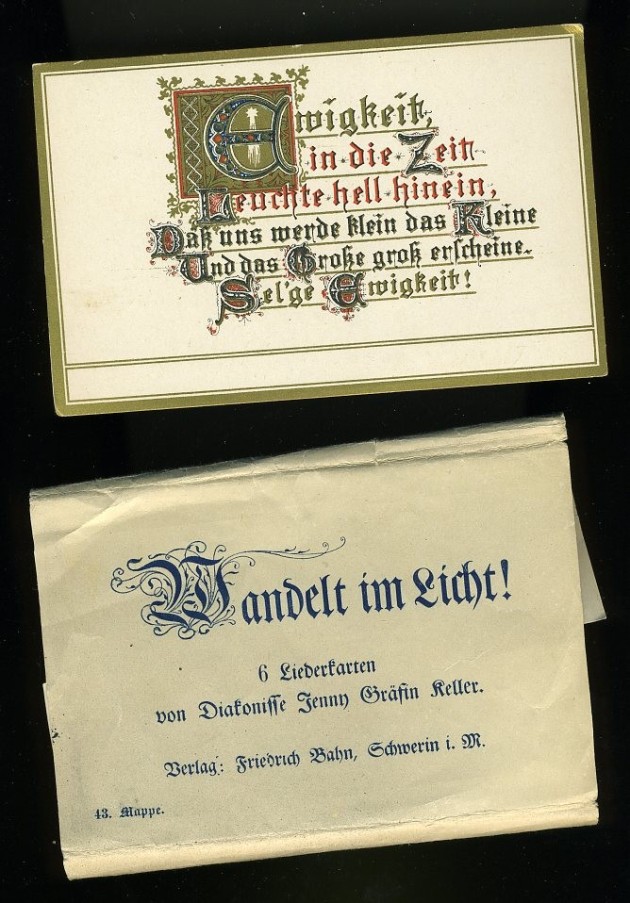 Ewigkeit,
in die Zeit
Leuchte hell hinein,
Daß uns werde klein das Kleine
Und das Große groß erscheine.
Sel'ge Ewigkeit!
Wandelt im Licht!
6 Liederkarten
von Diakonisse Jenny Gräfin Keller.
Verlag: Friedrich Bahn, Schwerin i. M.
43. Mappe.